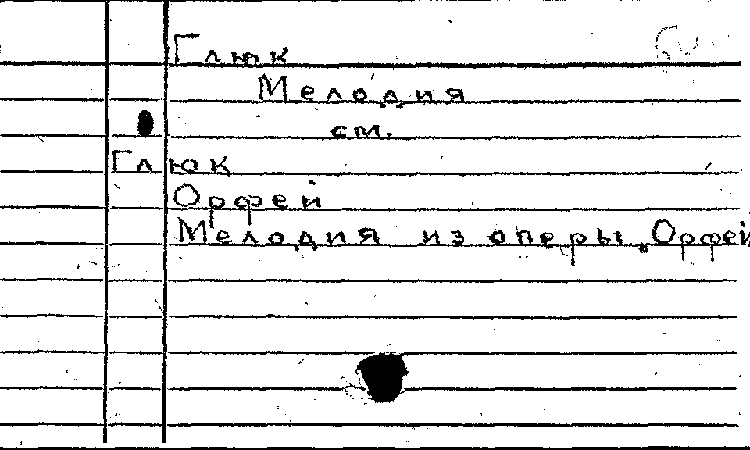 Глюк
Мелодия
см.
Глюк
Орфей
Мелодия из оперы „Орфей